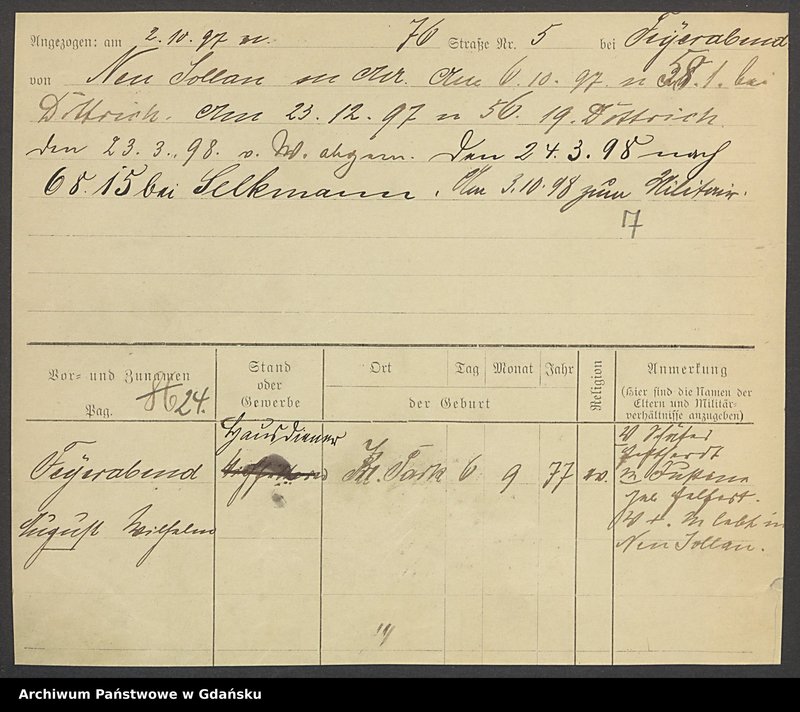 Angezogen: am 2.10.97 76 Straße Nr. 5 bei Feÿerabend
von Neu Jollan 6.10.97. 1. bei
Dottrich. Am 23.12.97 56. 19. Dottrich
den 23.3.98. v. W. abgem. Den 24.3.98 nach
68.15 bei Selkmann. Am 3.10.98 zum Militair.
7
Vor- und Zunamen
Pag. 24.
Stand
oder
Gewerbe
Ort Tag Monat Jahr
der Geburt
Religion
Anmerkung
(Hier sind die Namen der
Eltern und Militär-
verhältnisse anzugeben)
Hausdiener
Feÿerabend
August Wilhelm
Kl. Tark 6 9 77 ev.
V Schäfer
geb.
V +. M lebt in
Neu Jollan.
Archiwum Państwowe w Gdańsku